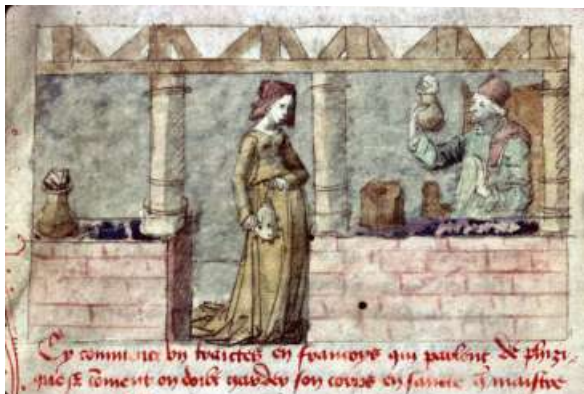 Cy commence un traictes en francoys qui parlent de phizi-
que et coment on doibt garder son corps en sancte q maistre